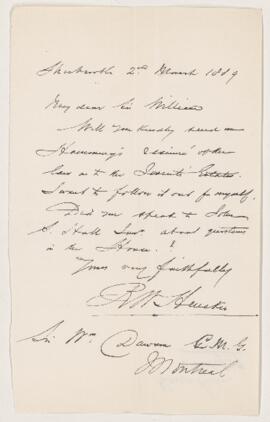 Sherbrooke 2nd March 1889
My dear Sir William
Will you kindly send me
Hemming's resumé of the
law as to the Jesuits' Estates.
I want to follow it out for myself.
Did you speak to John
S. Hall Junr about questions
in the House?
Yours very faithfully
R W Heneker
Sir Wm Dawson C.M.G.
Montreal